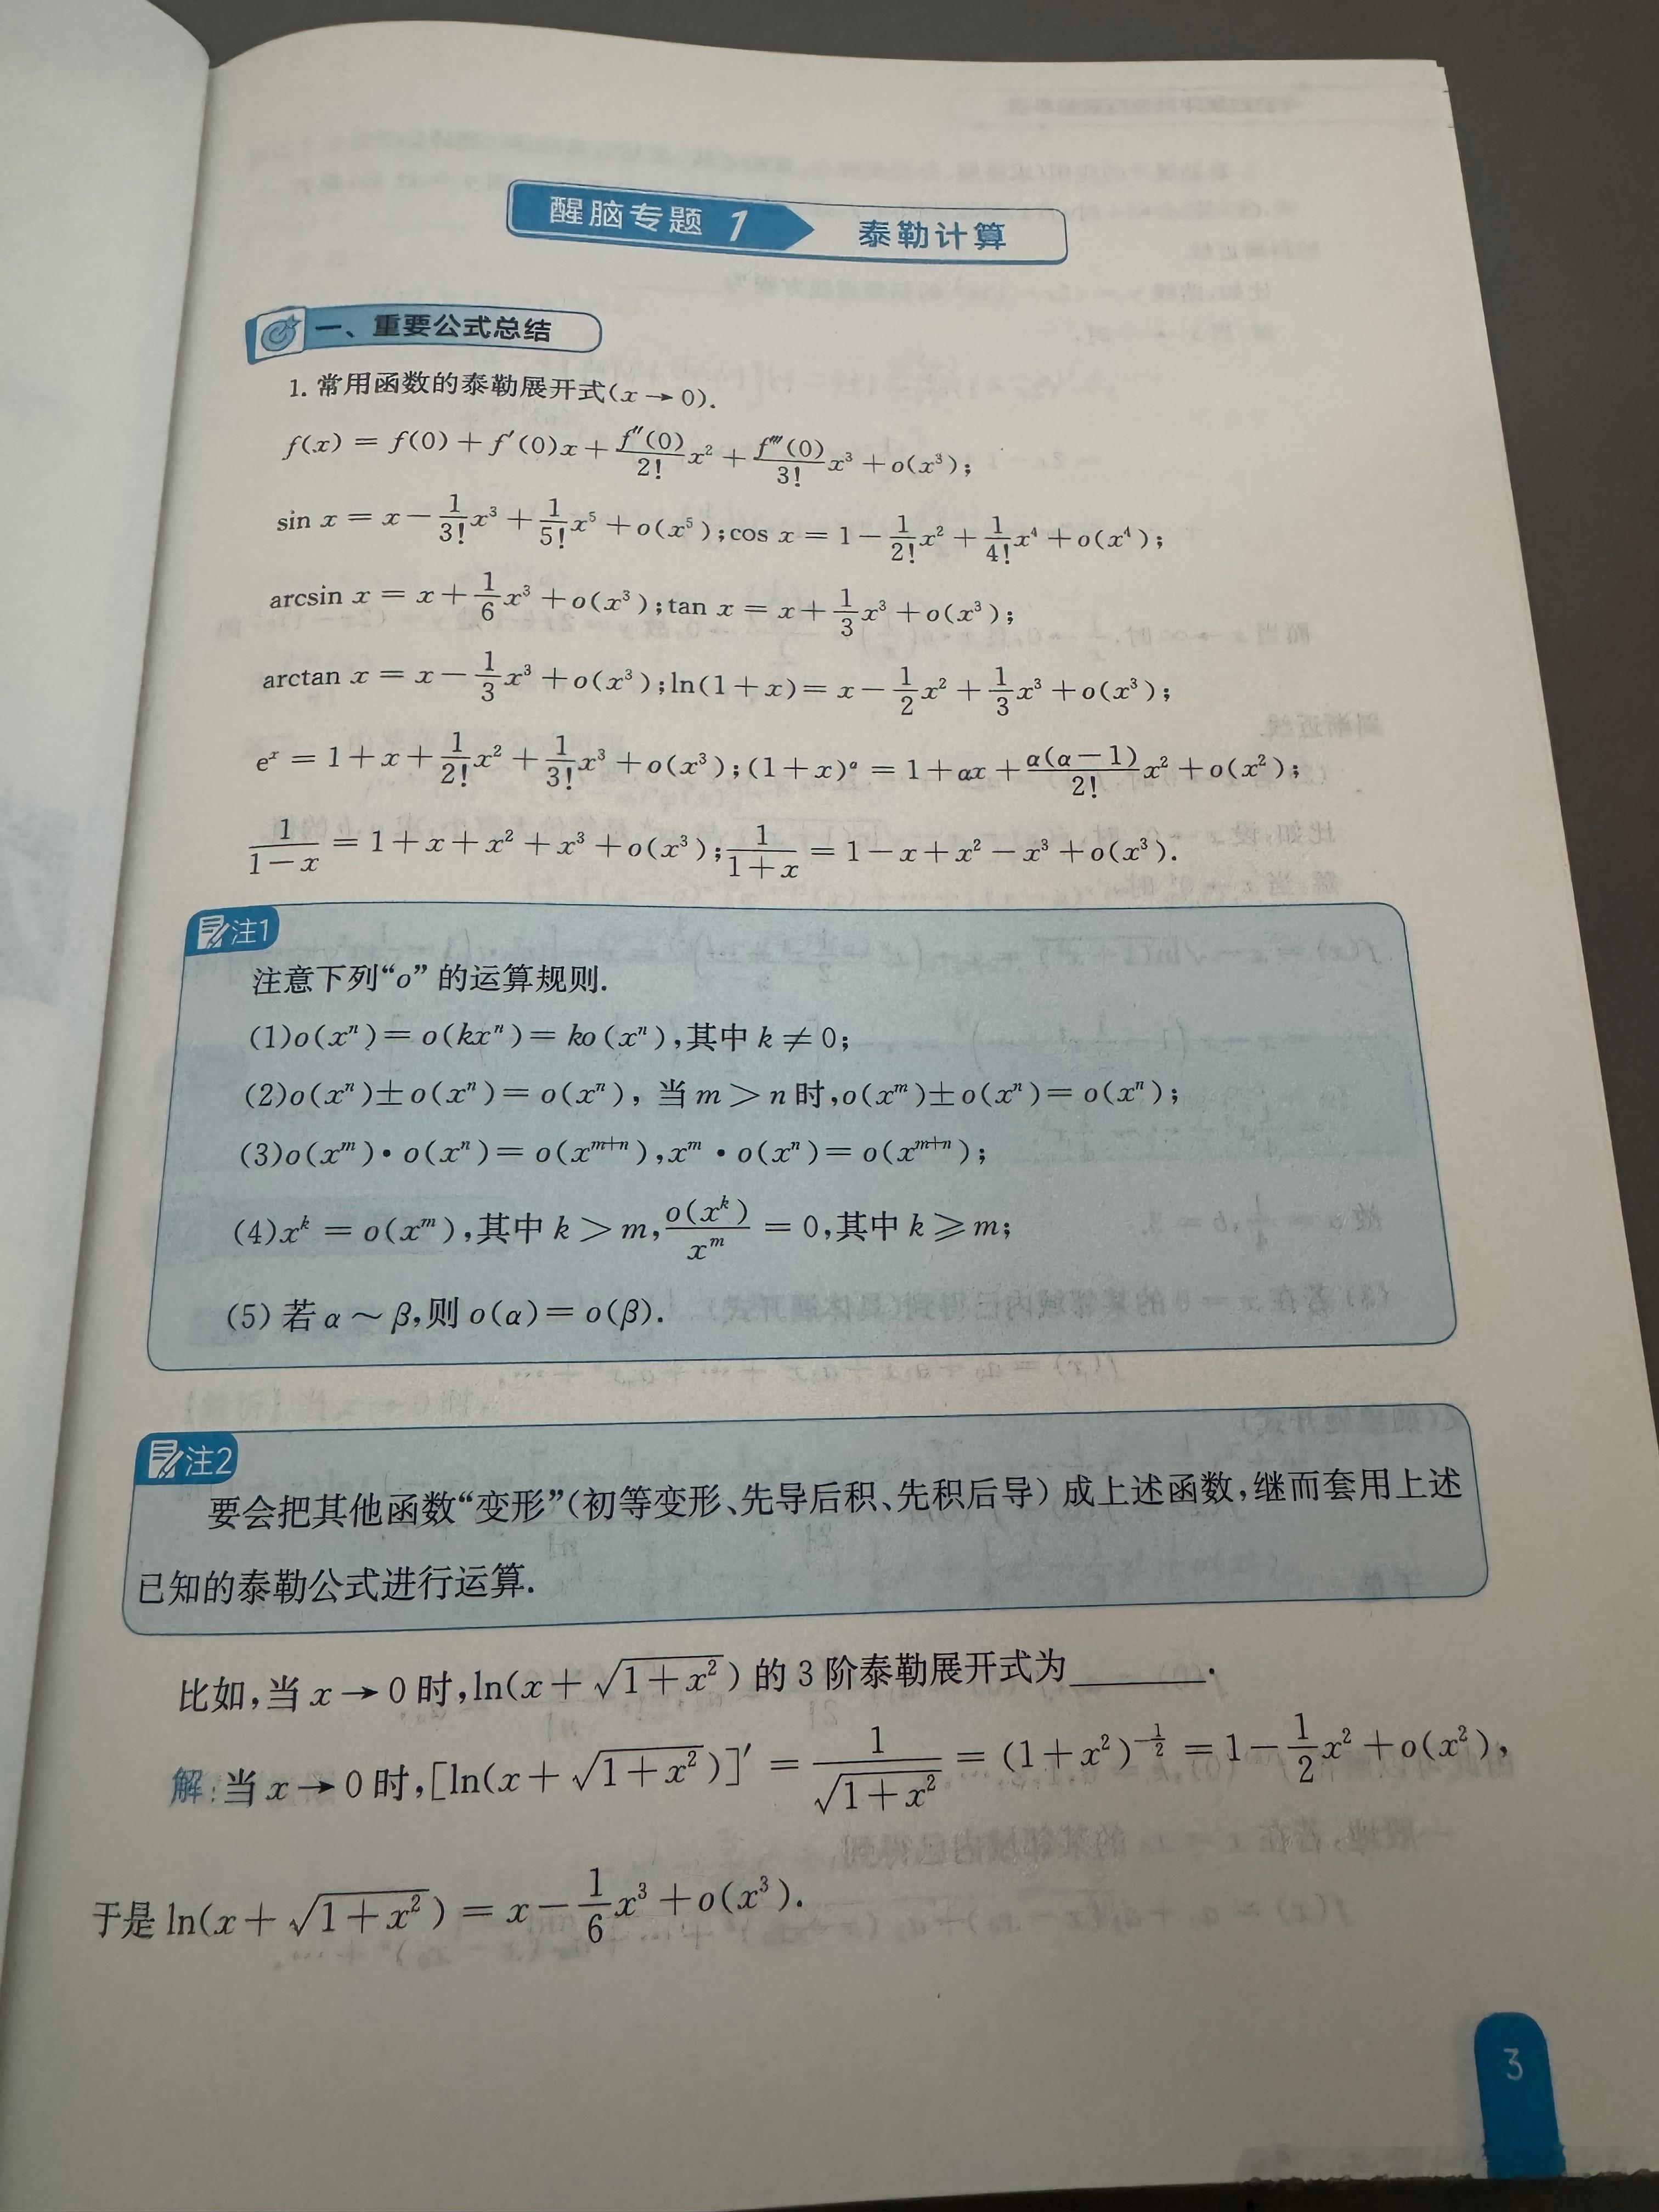 醒脑专题 1 泰勒计算
一、重要公式总结
1. 常用函数的泰勒展开式(x → 0).
f(x) = f(0) + f′(0)x + f″(0)/2! x² + f‴(0)/3! x³ + o(x³);
sin x = x − 1/3! x³ + 1/5! x⁵ + o(x⁵); cos x = 1 − 1/2! x² + 1/4! x⁴ + o(x⁴);
arcsin x = x + 1/6 x³ + o(x³); tan x = x + 1/3 x³ + o(x³);
arctan x = x − 1/3 x³ + o(x³); ln(1+x) = x − 1/2 x² + 1/3 x³ + o(x³);
eˣ = 1 + x + 1/2! x² + 1/3! x³ + o(x³); (1+x)^α = 1 + αx + α(α−1)/2! x² + o(x²);
1/(1−x) = 1 + x + x² + x³ + o(x³); 1/(1+x) = 1 − x + x² − x³ + o(x³).
注1
注意下列“o”的运算规则.
(1)o(xⁿ) = o(kxⁿ) = ko(xⁿ),其中 k ≠ 0;
(2)o(xⁿ) ± o(xⁿ) = o(xⁿ), 当 m > n 时,o(xᵐ) ± o(xⁿ) = o(xⁿ);
(3)o(xᵐ) • o(xⁿ) = o(xᵐ⁺ⁿ),xᵐ • o(xⁿ) = o(xᵐ⁺ⁿ);
(4)xᵏ = o(xᵐ),其中 k > m, o(xᵏ)/xᵐ = 0,其中 k ⩾ m;
(5) 若 α ~ β,则 o(α) = o(β).
注2
要会把其他函数“变形”(初等变形、先导后积、先积后导) 成上述函数,继而套用上述
已知的泰勒公式进行运算.
比如,当 x → 0 时,ln(x + √(1+x²)) 的 3 阶泰勒展开式为______.
解:当 x → 0 时,[ln(x + √(1+x²))]′ = 1/√(1+x²) = (1+x²)^(−1/2) = 1 − 1/2 x² + o(x²),
于是 ln(x + √(1+x²)) = x − 1/6 x³ + o(x³).
3